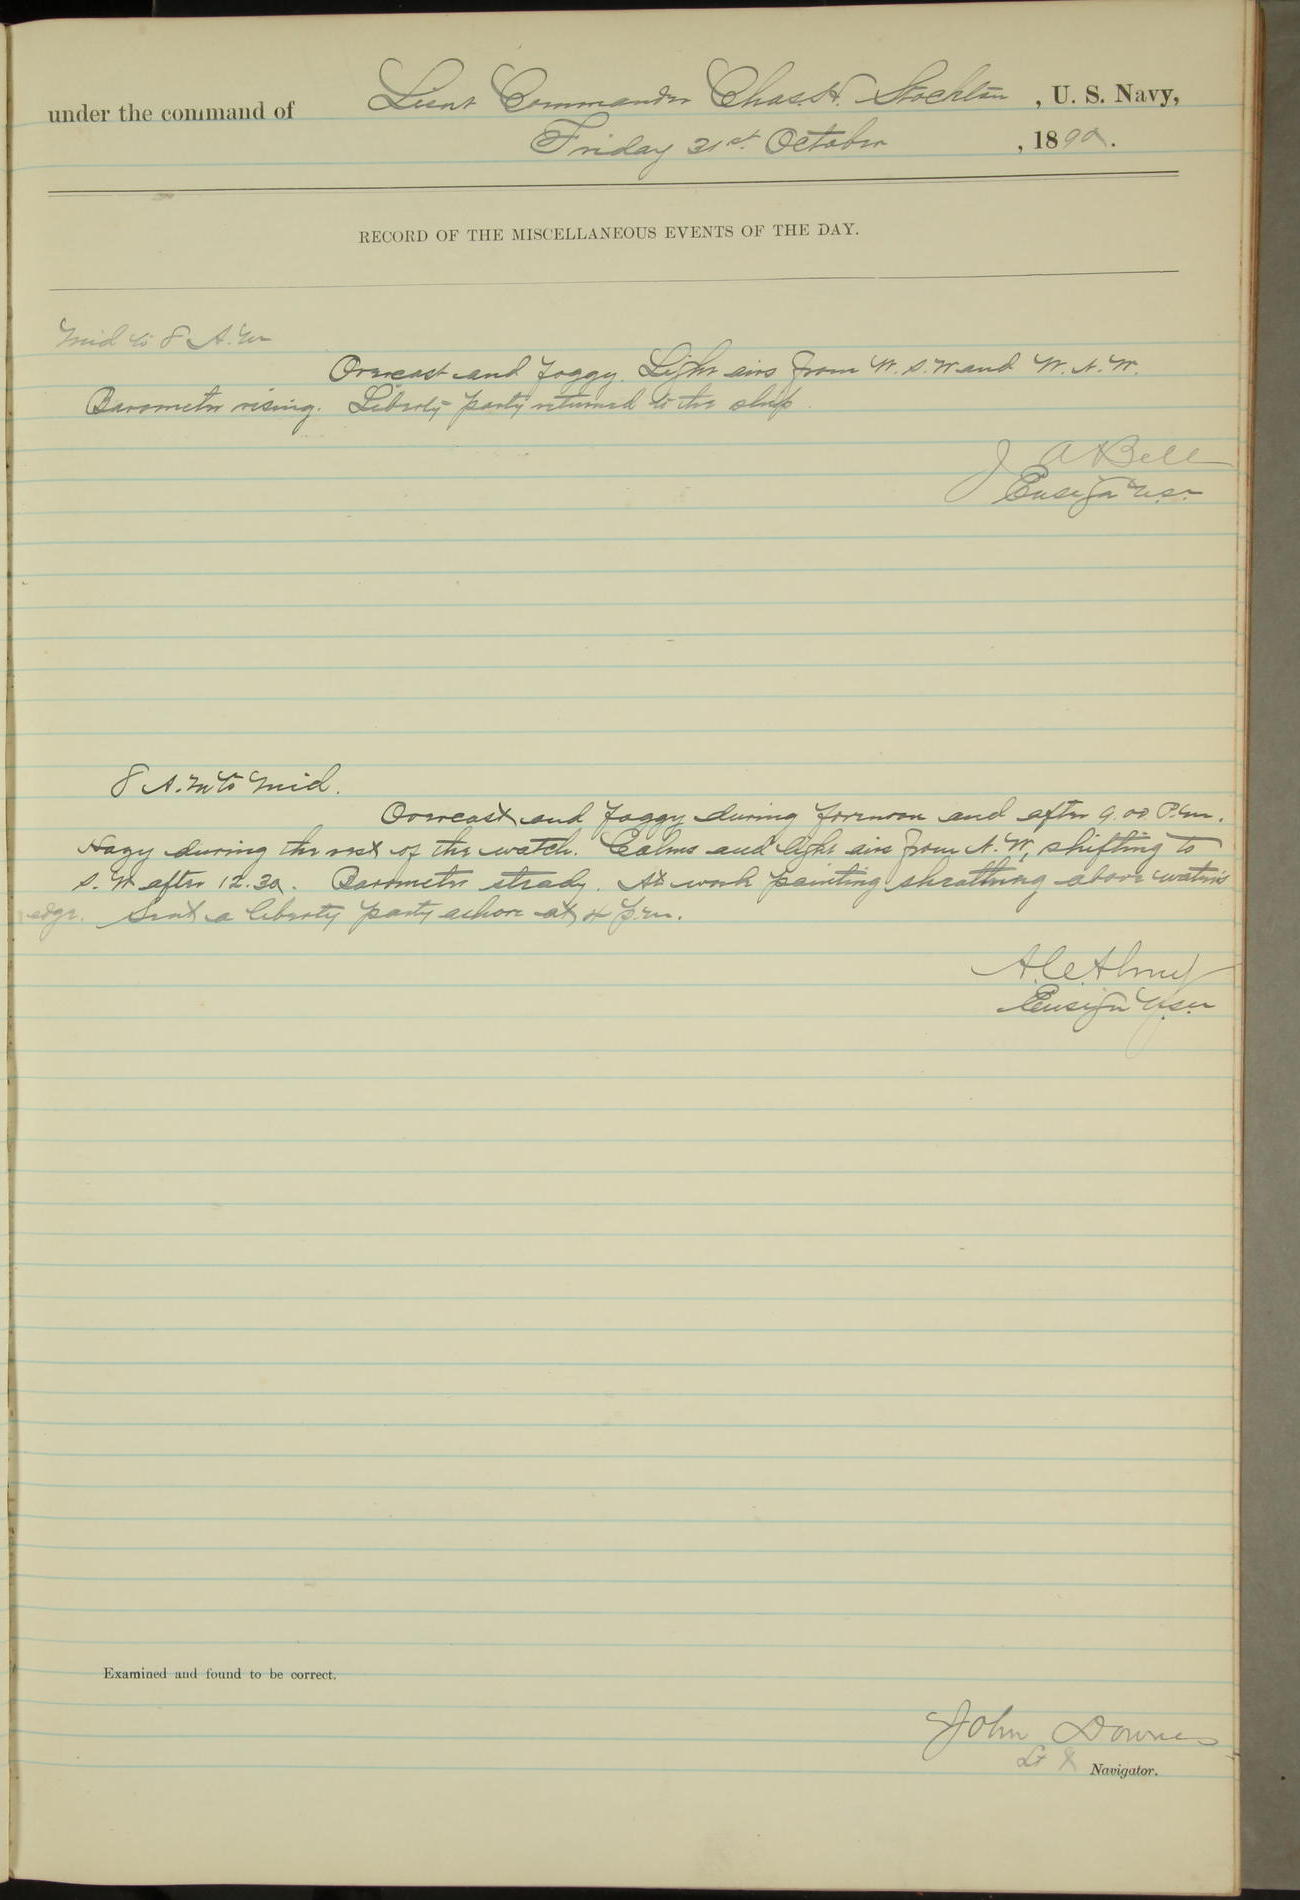 under the command of Lieut Commander Chas. H. Stockton, U. S. Navy,
Friday 31st. October, 1890.
RECORD OF THE MISCELLANEOUS EVENTS OF THE DAY.
Mid to 8 A.M
Overcast and foggy. Light airs from W.S.W and W.N.W.
Barometer rising. Liberty party returned to the ship
J A Bell
Ensign USN
8 A.M to Mid.
Overcast and foggy during forenoon and after 9.00 P.m.
Hazy during the rest of the watch. Calms and light airs from N.W, shifting to
S.W after 12.30. Barometer steady. At work painting sheathing above water's
edge. Sent a liberty party ashore at 4 p.m.
A.C. Almy
Ensign USN
Examined and found to be correct.
John Downes
Lt & Navigator.